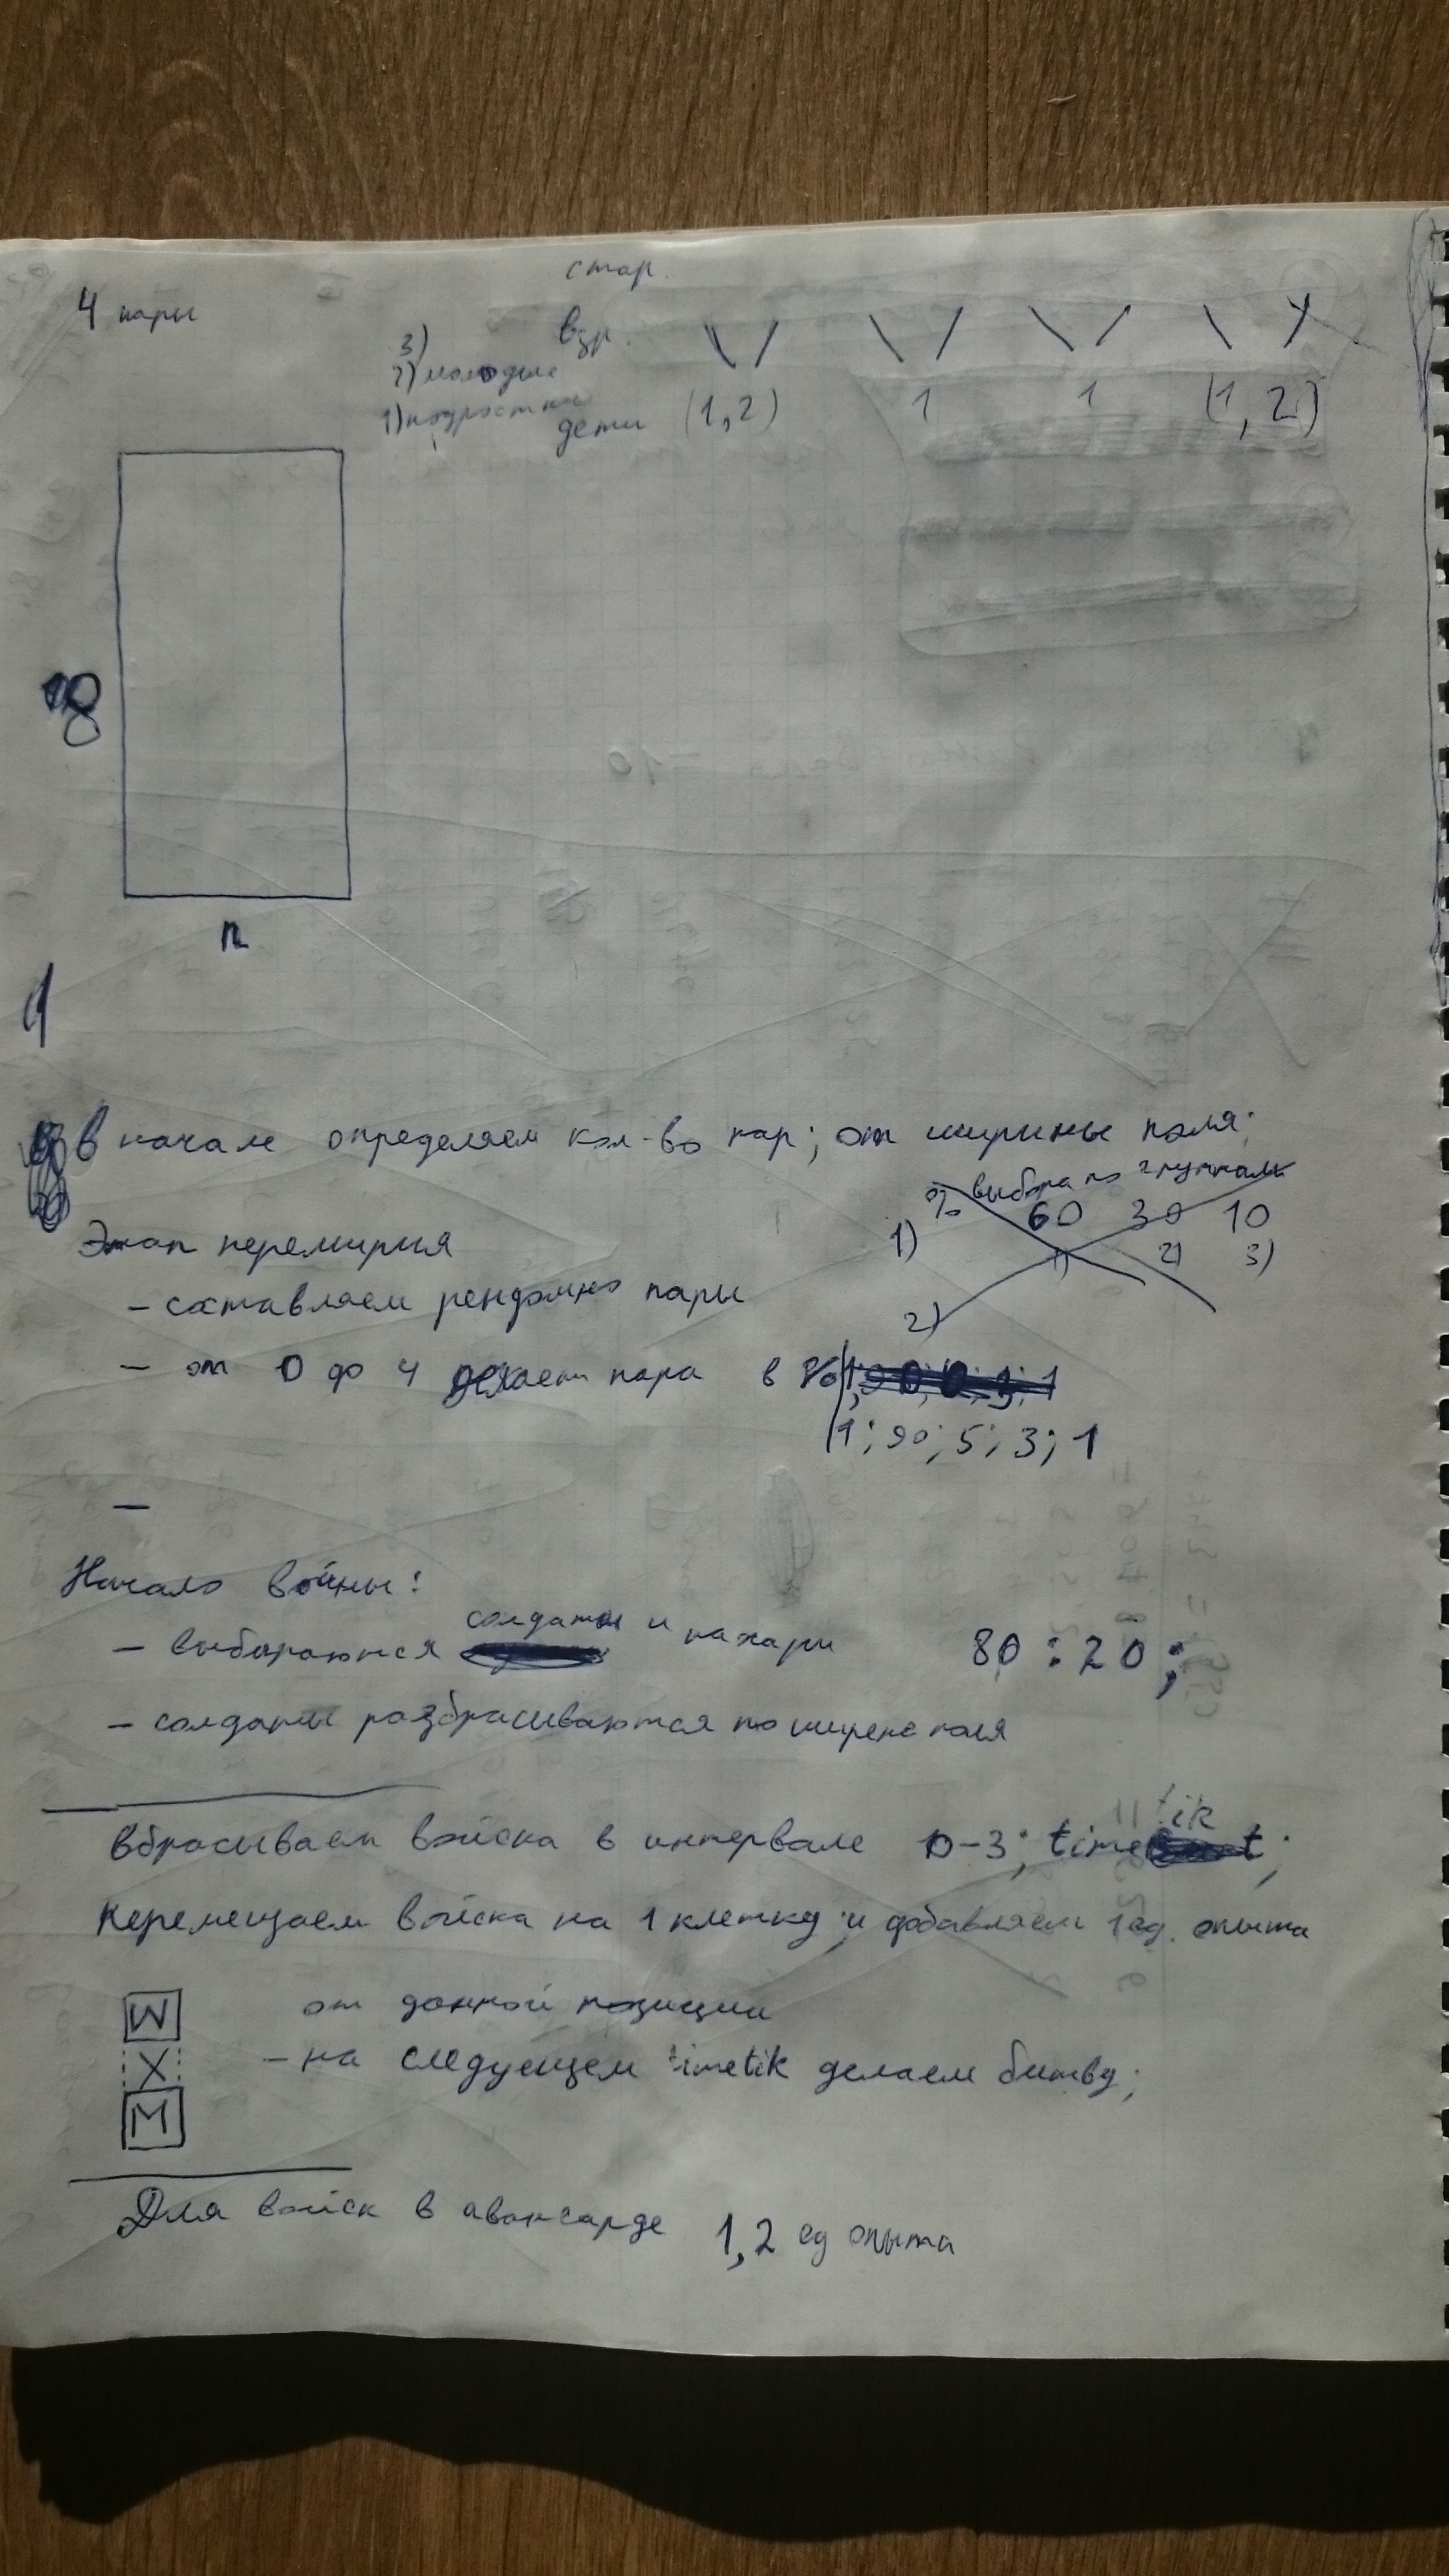 стар.
4 пары
взр.
3)
2) молодые
1) подростки
дети (1,2) 1 1 (1,2)
8
n
В начале определяем кол-во пар; от ширины поля;
% выбора по группам
60 30 10
1)
1) 2) 3)
2)
Этап перемирия
- составляем рендомно пары
- от 0 до 4 делает пара в %
1; 90; 5; 3; 1
-
Начало войны:
- выбираются солдаты и пахари 80 : 20;
- солдаты разбрасываются по ширене поля
Вбрасываем войска в интервале 0-3; timetik;
Перемещаем войска на 1 клетку и добавляем 1 ед. опыта
W
X
M
от данной позиции
- на следующем timetik делаем битву;
Для войск в авангарде 1,2 ед опыта